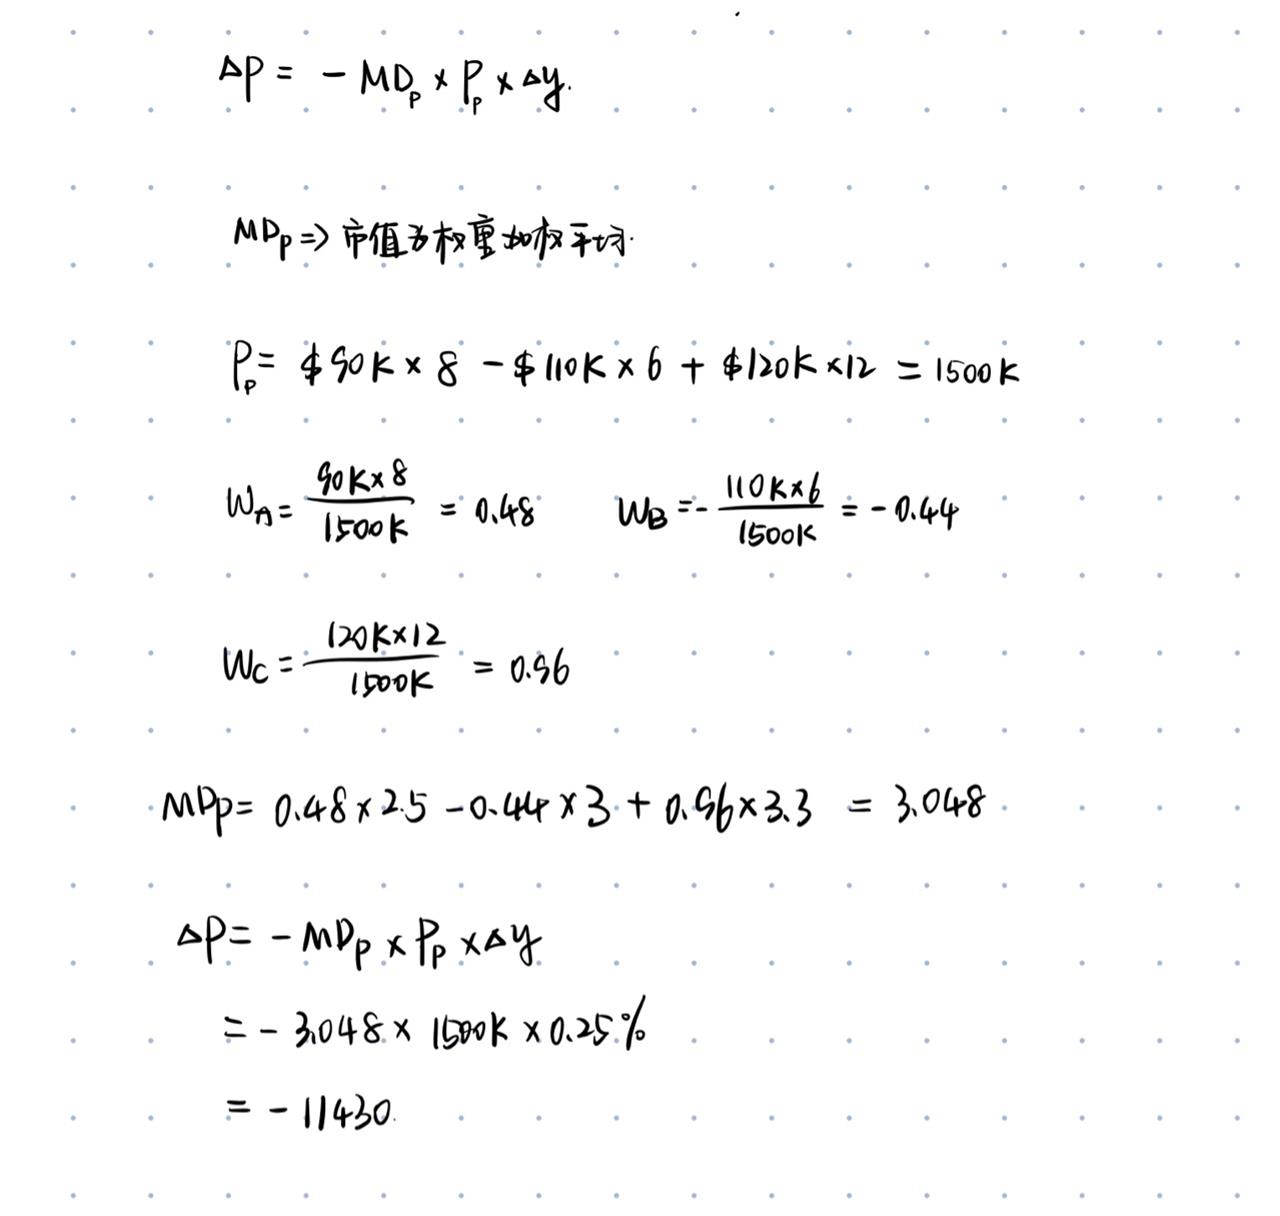 ΔP = - MD_P × P_P × Δy.
MD_P => 市值为权重加权平均.
P_P = $90K × 8 - $110K × 6 + $120K × 12 = 1500K
W_A = \frac{90K×8}{1500K} = 0.48 W_B = -\frac{110K×6}{1500K} = -0.44
W_C = \frac{120K×12}{1500K} = 0.96
MD_P = 0.48 × 2.5 - 0.44 × 3 + 0.96 × 3.3 = 3.048
ΔP = - MD_P × P_P × Δy
= - 3.048 × 1500K × 0.25%
= - 11430.